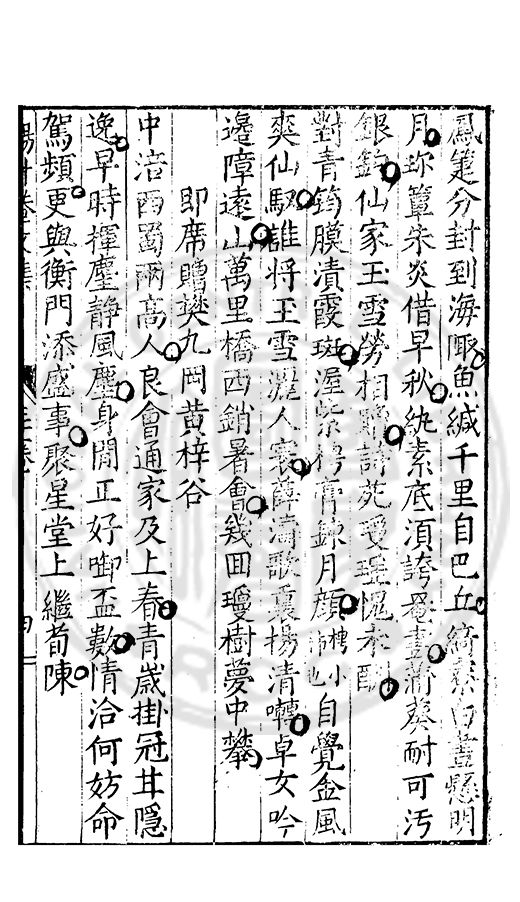 鳳箋分封到海陬魚緘千里自巴丘綺白晝懸明
月珎簟朱炎借早秋紈素底須誇畫蒲葵耐可汚
銀鉤仙家玉雪勞相贈詩苑瓊瑶愧未酬
對青筠膜漬霞斑渥紫膏鍊月顔小也自覺金風
爽仙馭誰將玉雪灑人寰薛濤歌裏楊清囀卓女吟
邊障遠山萬里橋西銷暑會幾囬瓊樹夢中攀
即席贈樊九岡黃梓谷
中涪西蜀兩高人良會通家及上春青歲掛冠甘隱
逸早時揮麈静風塵身閒正好啣盃數情洽何妨命
駕頻更與衡門添盛事聚星堂上繼荀陳